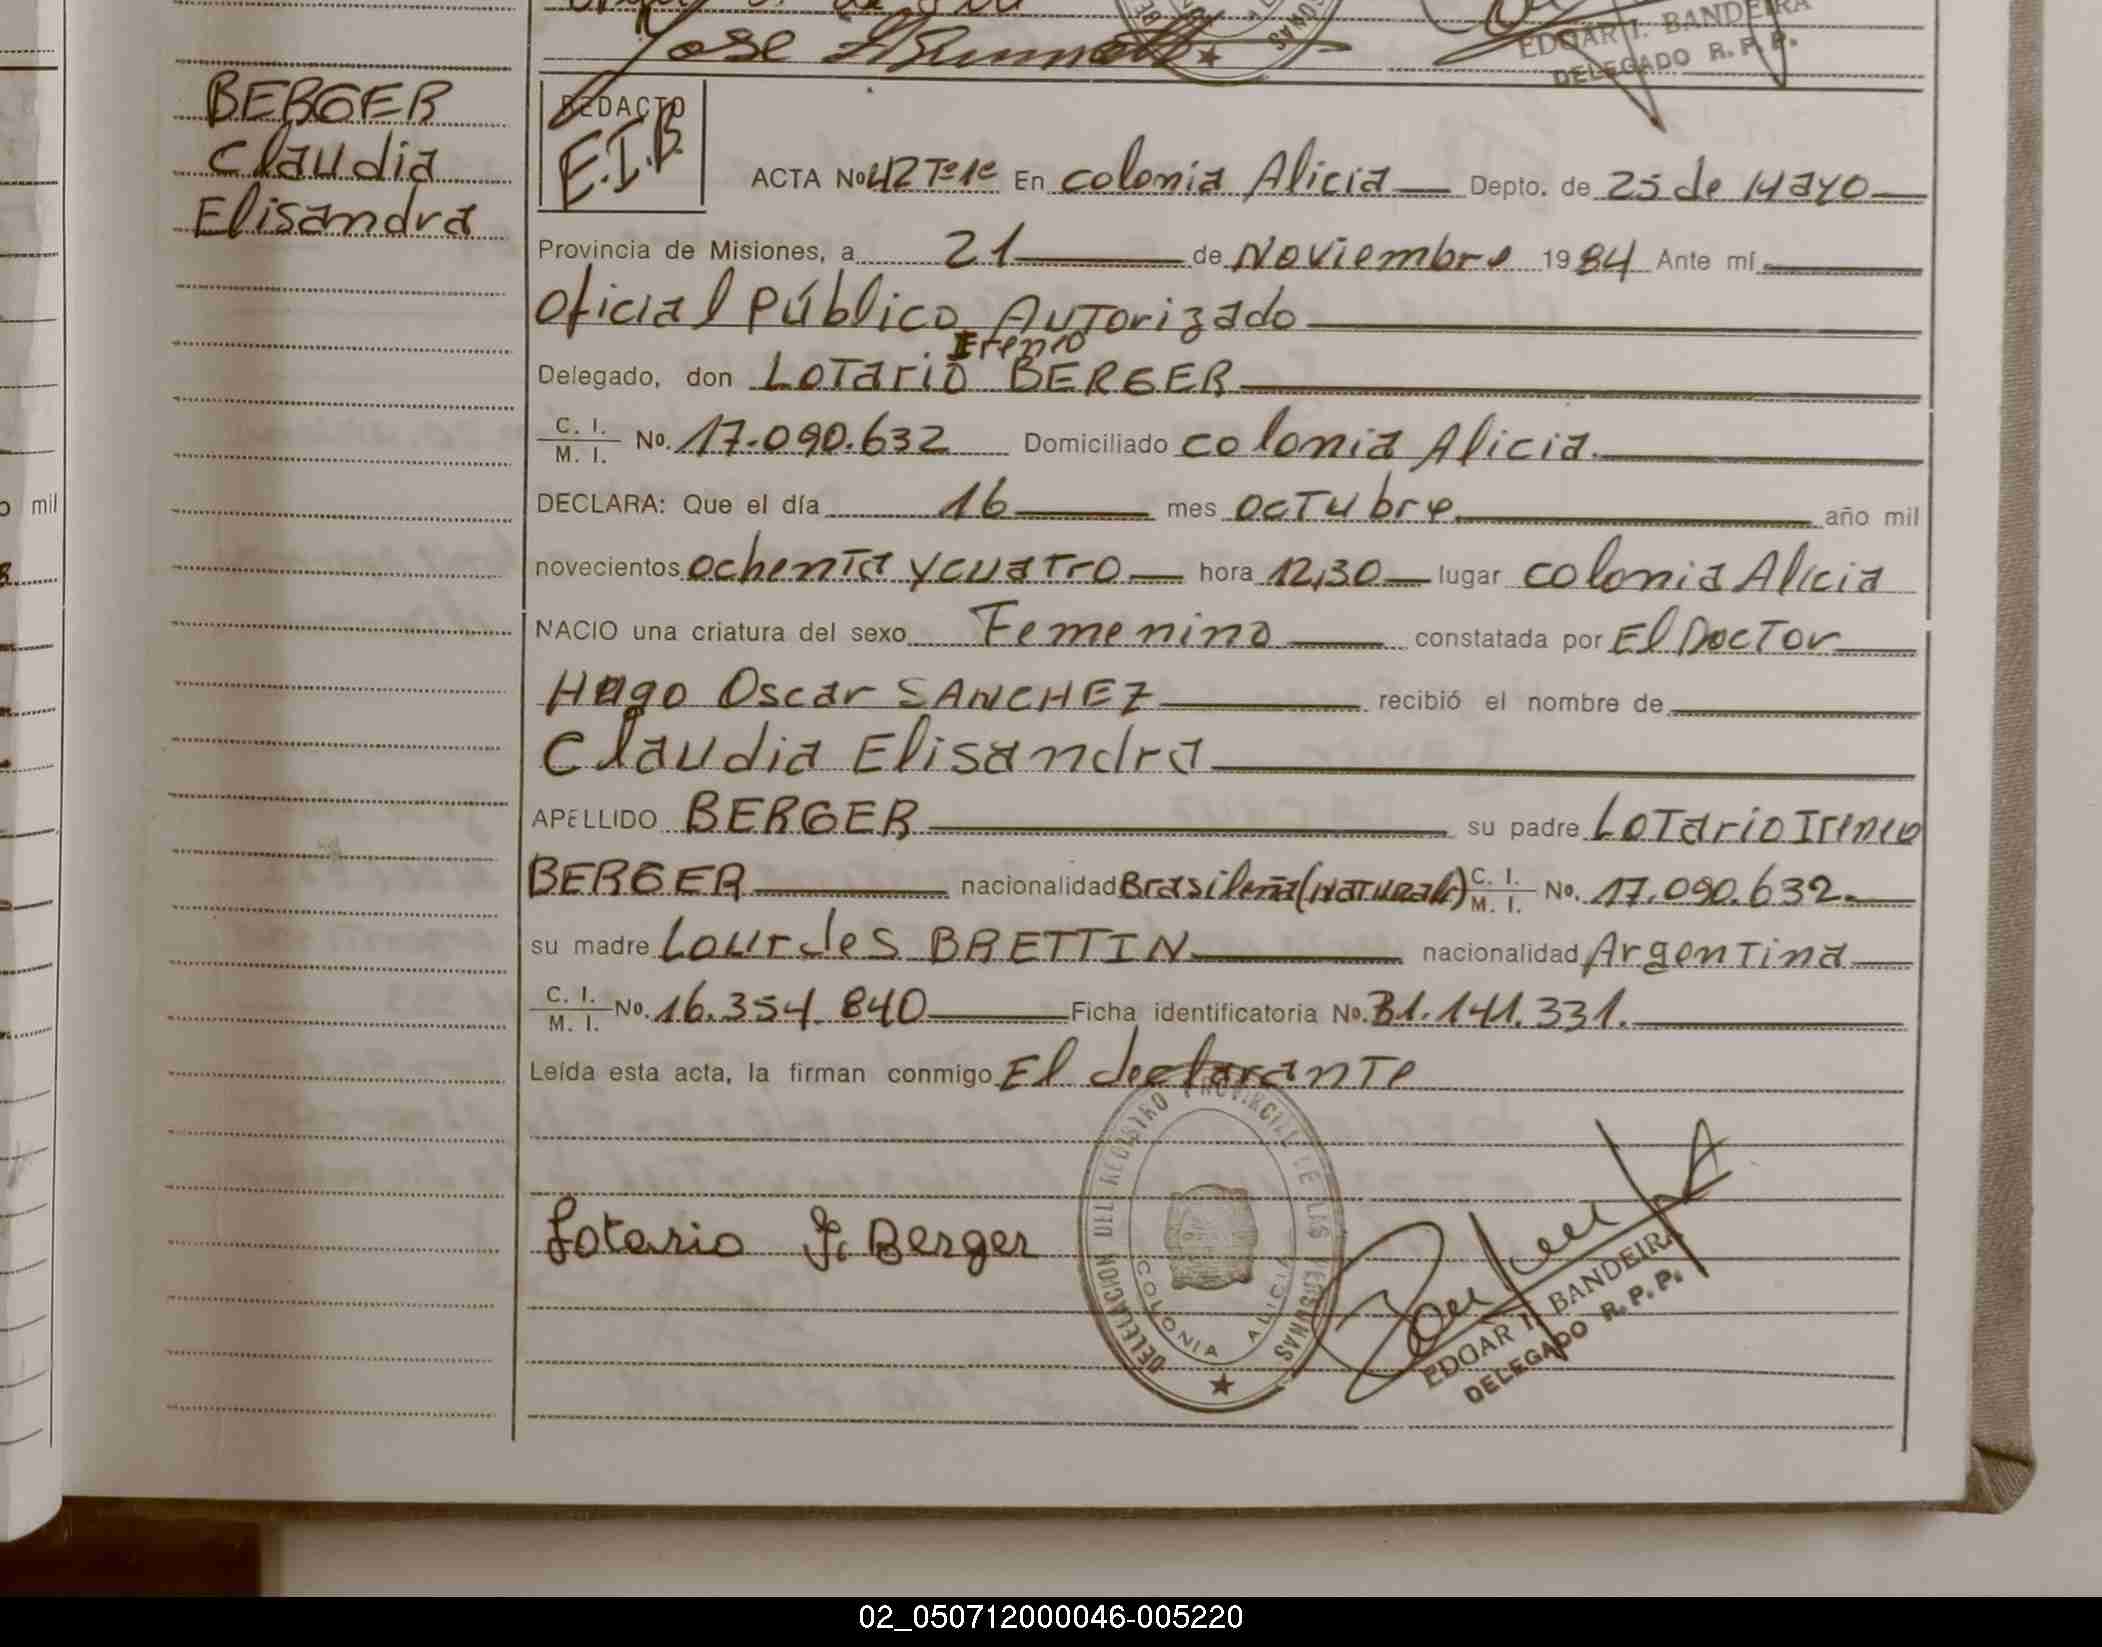 EDGAR I. BANDEIRA
DELEGADO R. P. P.
BERGER
Claudia
Elisandra
REDACTO
E.I.B
ACTA Nº 42 Tº1º En colonia Alicia Depto. de 25 de Mayo
Provincia de Misiones, a 21 de Noviembre 1984 Ante mí
Oficial Público Autorizado
Irenio
Delegado, don LoTario BERGER
C. I. / M. I. Nº. 17.090.632 Domiciliado colonia Alicia.
DECLARA: Que el día 16 mes ocTubre año mil
novecientos ochenTa y cuaTro hora 12,30 lugar colonia Alicia
NACIO una criatura del sexo Femenino constatada por El DocTor
Hugo Oscar SANCHEZ recibió el nombre de
Claudia Elisandra
APELLIDO BERGER su padre LoTario Irenio
BERGER nacionalidad Brasileña (NATURAL) C. I. / M. I. Nº. 17.090.632.
su madre Lourdes BRETTIN nacionalidad ArgenTina
C. I. / M. I. Nº. 16.354.840 Ficha identificatoria Nº. 31.141.331.
Leída esta acta, la firman conmigo El declaranTe
Lotario I. Berger
DELEGACION DEL REGISTRO PROVINCIAL DE LAS PERSONAS
COLONIA ALICIA
EDGAR I. BANDEIRA
DELEGADO R. P. P.
o mil
02_050712000046-005220